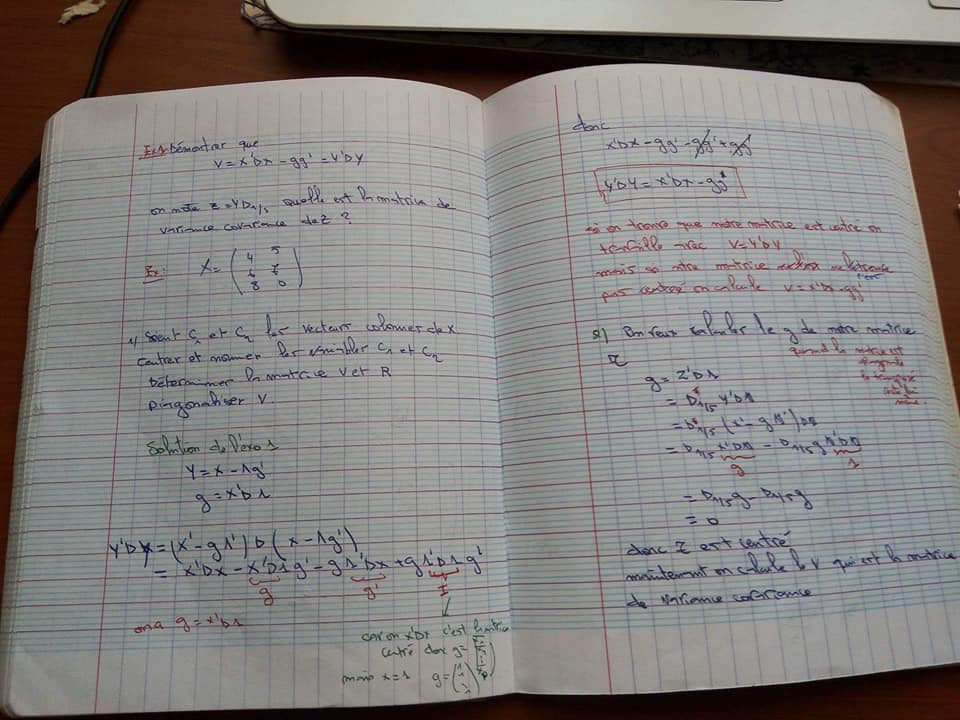 Ex1 Démontrer que
V = X'DX - gg' = Y'DY
on note Z = YD1/s quelle est la matrice de
variance covariance de Z ?
Ex: X = ( 4 5
6 7
8 0 )
1/ Soient C1 et C2 les vecteurs colonnes de X
Centrer et normer les variables C1 et C2
Déterminer la matrice V et R
Diagonaliser V.
Solution de l'exo 1
Y = X - 1g'
g = X'D1
Y'DY = (X' - g1') D (X - 1g')
= X'DX - X'D1g' - g1'DX + g1'D1g'
g g' I
on a g = X'D1
car on X'DX c'est la matrice
centré donc g =
mais x = 1 g = ( 1 1 1 )
donc
X'DX - gg' - gg' + gg'
Y'DY = X'DX - gg'
si on trouve que notre matrice est centré on
travaille avec V = Y'DY
mais si notre matrice
pas centré on calcule V = X'DX - gg'
2) On veut calculer le g de notre matrice
Z
quand la matrice est
g = Z'D1
= D1/s Y'D1
= D1/s (X' - g1') D1
= D1/s X'D1 - D1/s g1'D1
g 1
= D1/s g - D1/s g
= 0
donc Z est centré
maintenant on calcule le V qui est la matrice
de variance covariance